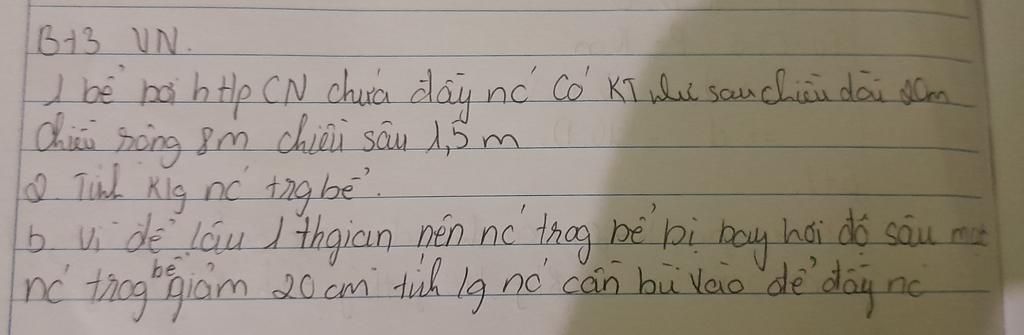 Bt3 VN.
1 bể bơi hHp CN chứa đầy nc' có KT như sau chiều dài 20m
chiều rộng 8m chiều sâu 1,5m
a. Tính Klg nc' trg bể.
b. Vì để lâu 1 thgian nên nc' trog bể bị bay hơi độ sâu
nc' trog bể giảm 20 cm tính lg nc' cần bù vào để đầy nc